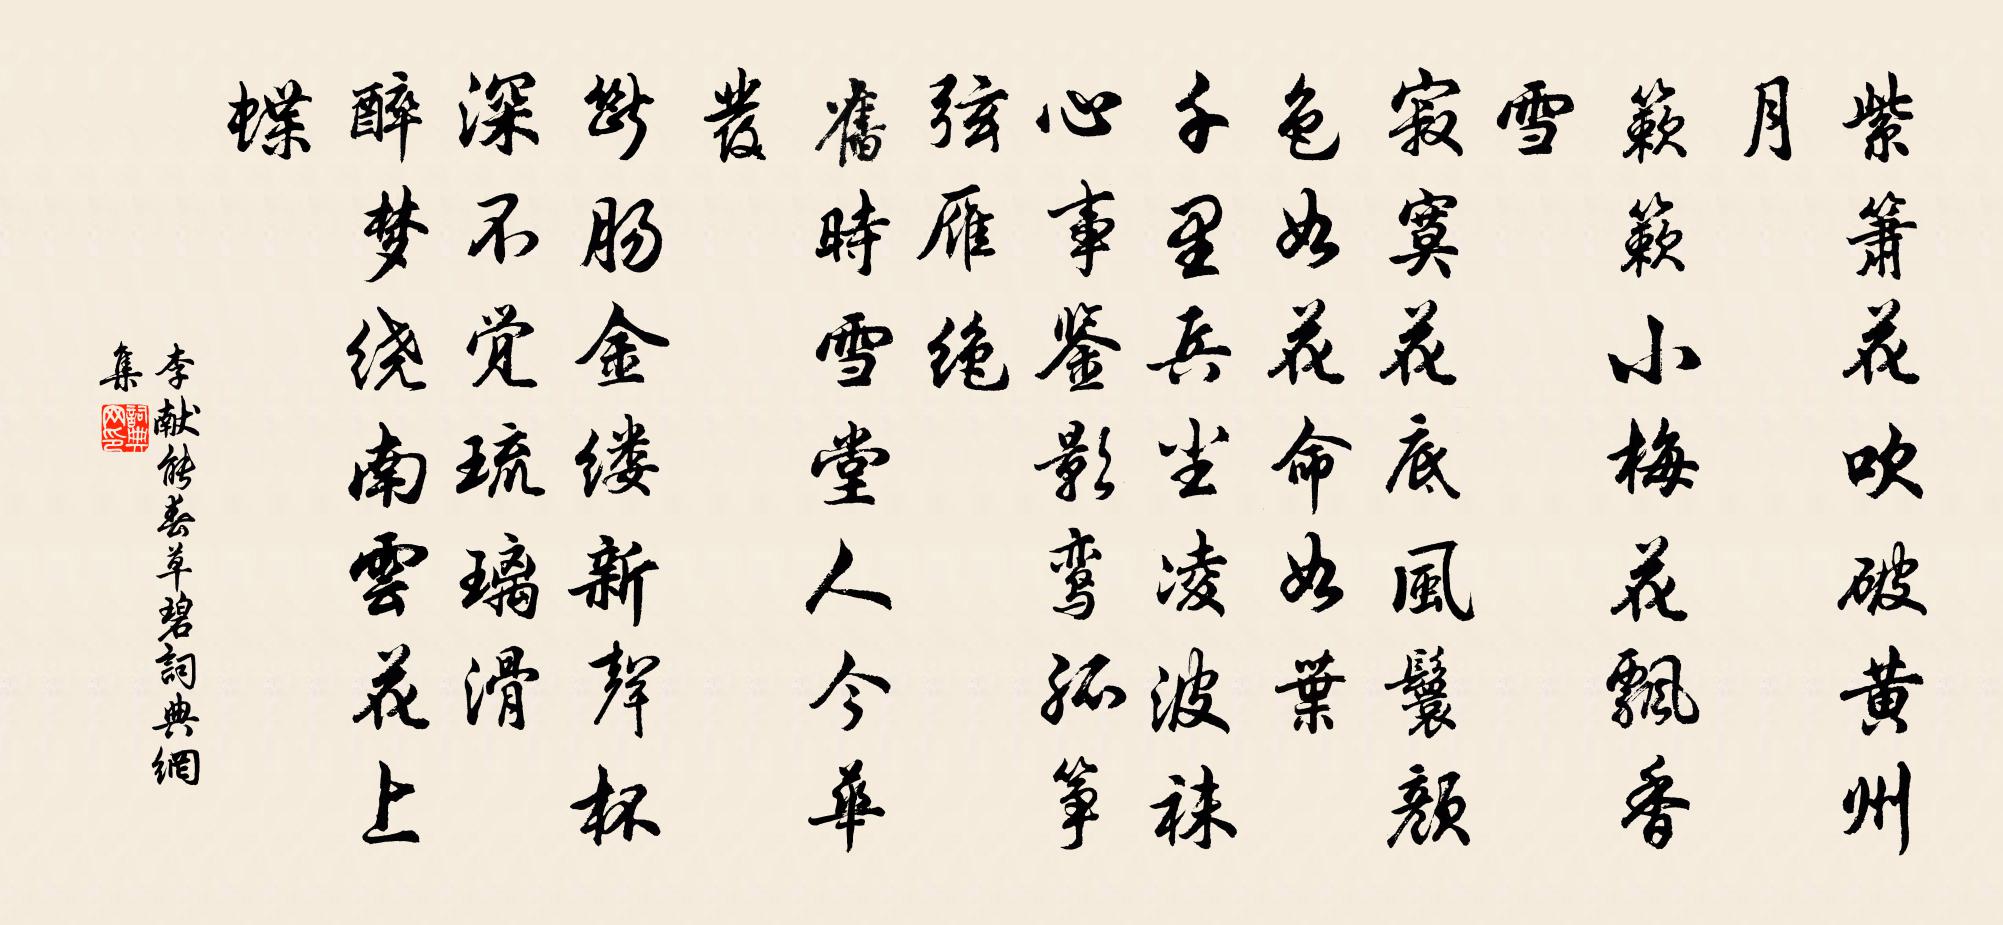 紫箫花吹破黄州
月
簌簌小梅花飘香
雪
寂寞花底風鬟颜
色如花命如葉
千里兵尘凌波袜
心事鉴影鸾孤筝
弦雁绝
舊時雪堂人今華
發
斷肠金缕新聲杯
深不觉琉璃滑
醉梦绕南雲花上
蝶
李献能春草碧詞典網
集
詞典网印